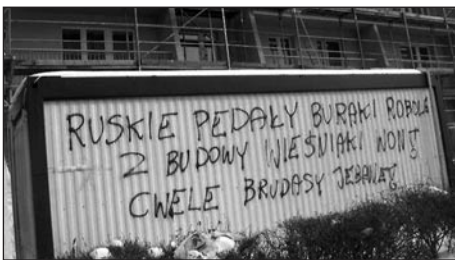 RUSKIE PEDAŁY BURAKI ROBOLE
Z BUDOWY WIEŚNIAKI WON!
CWELE BRUDASY JEBANE!